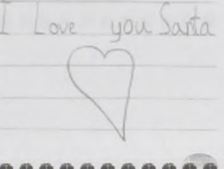 I Love you Santa